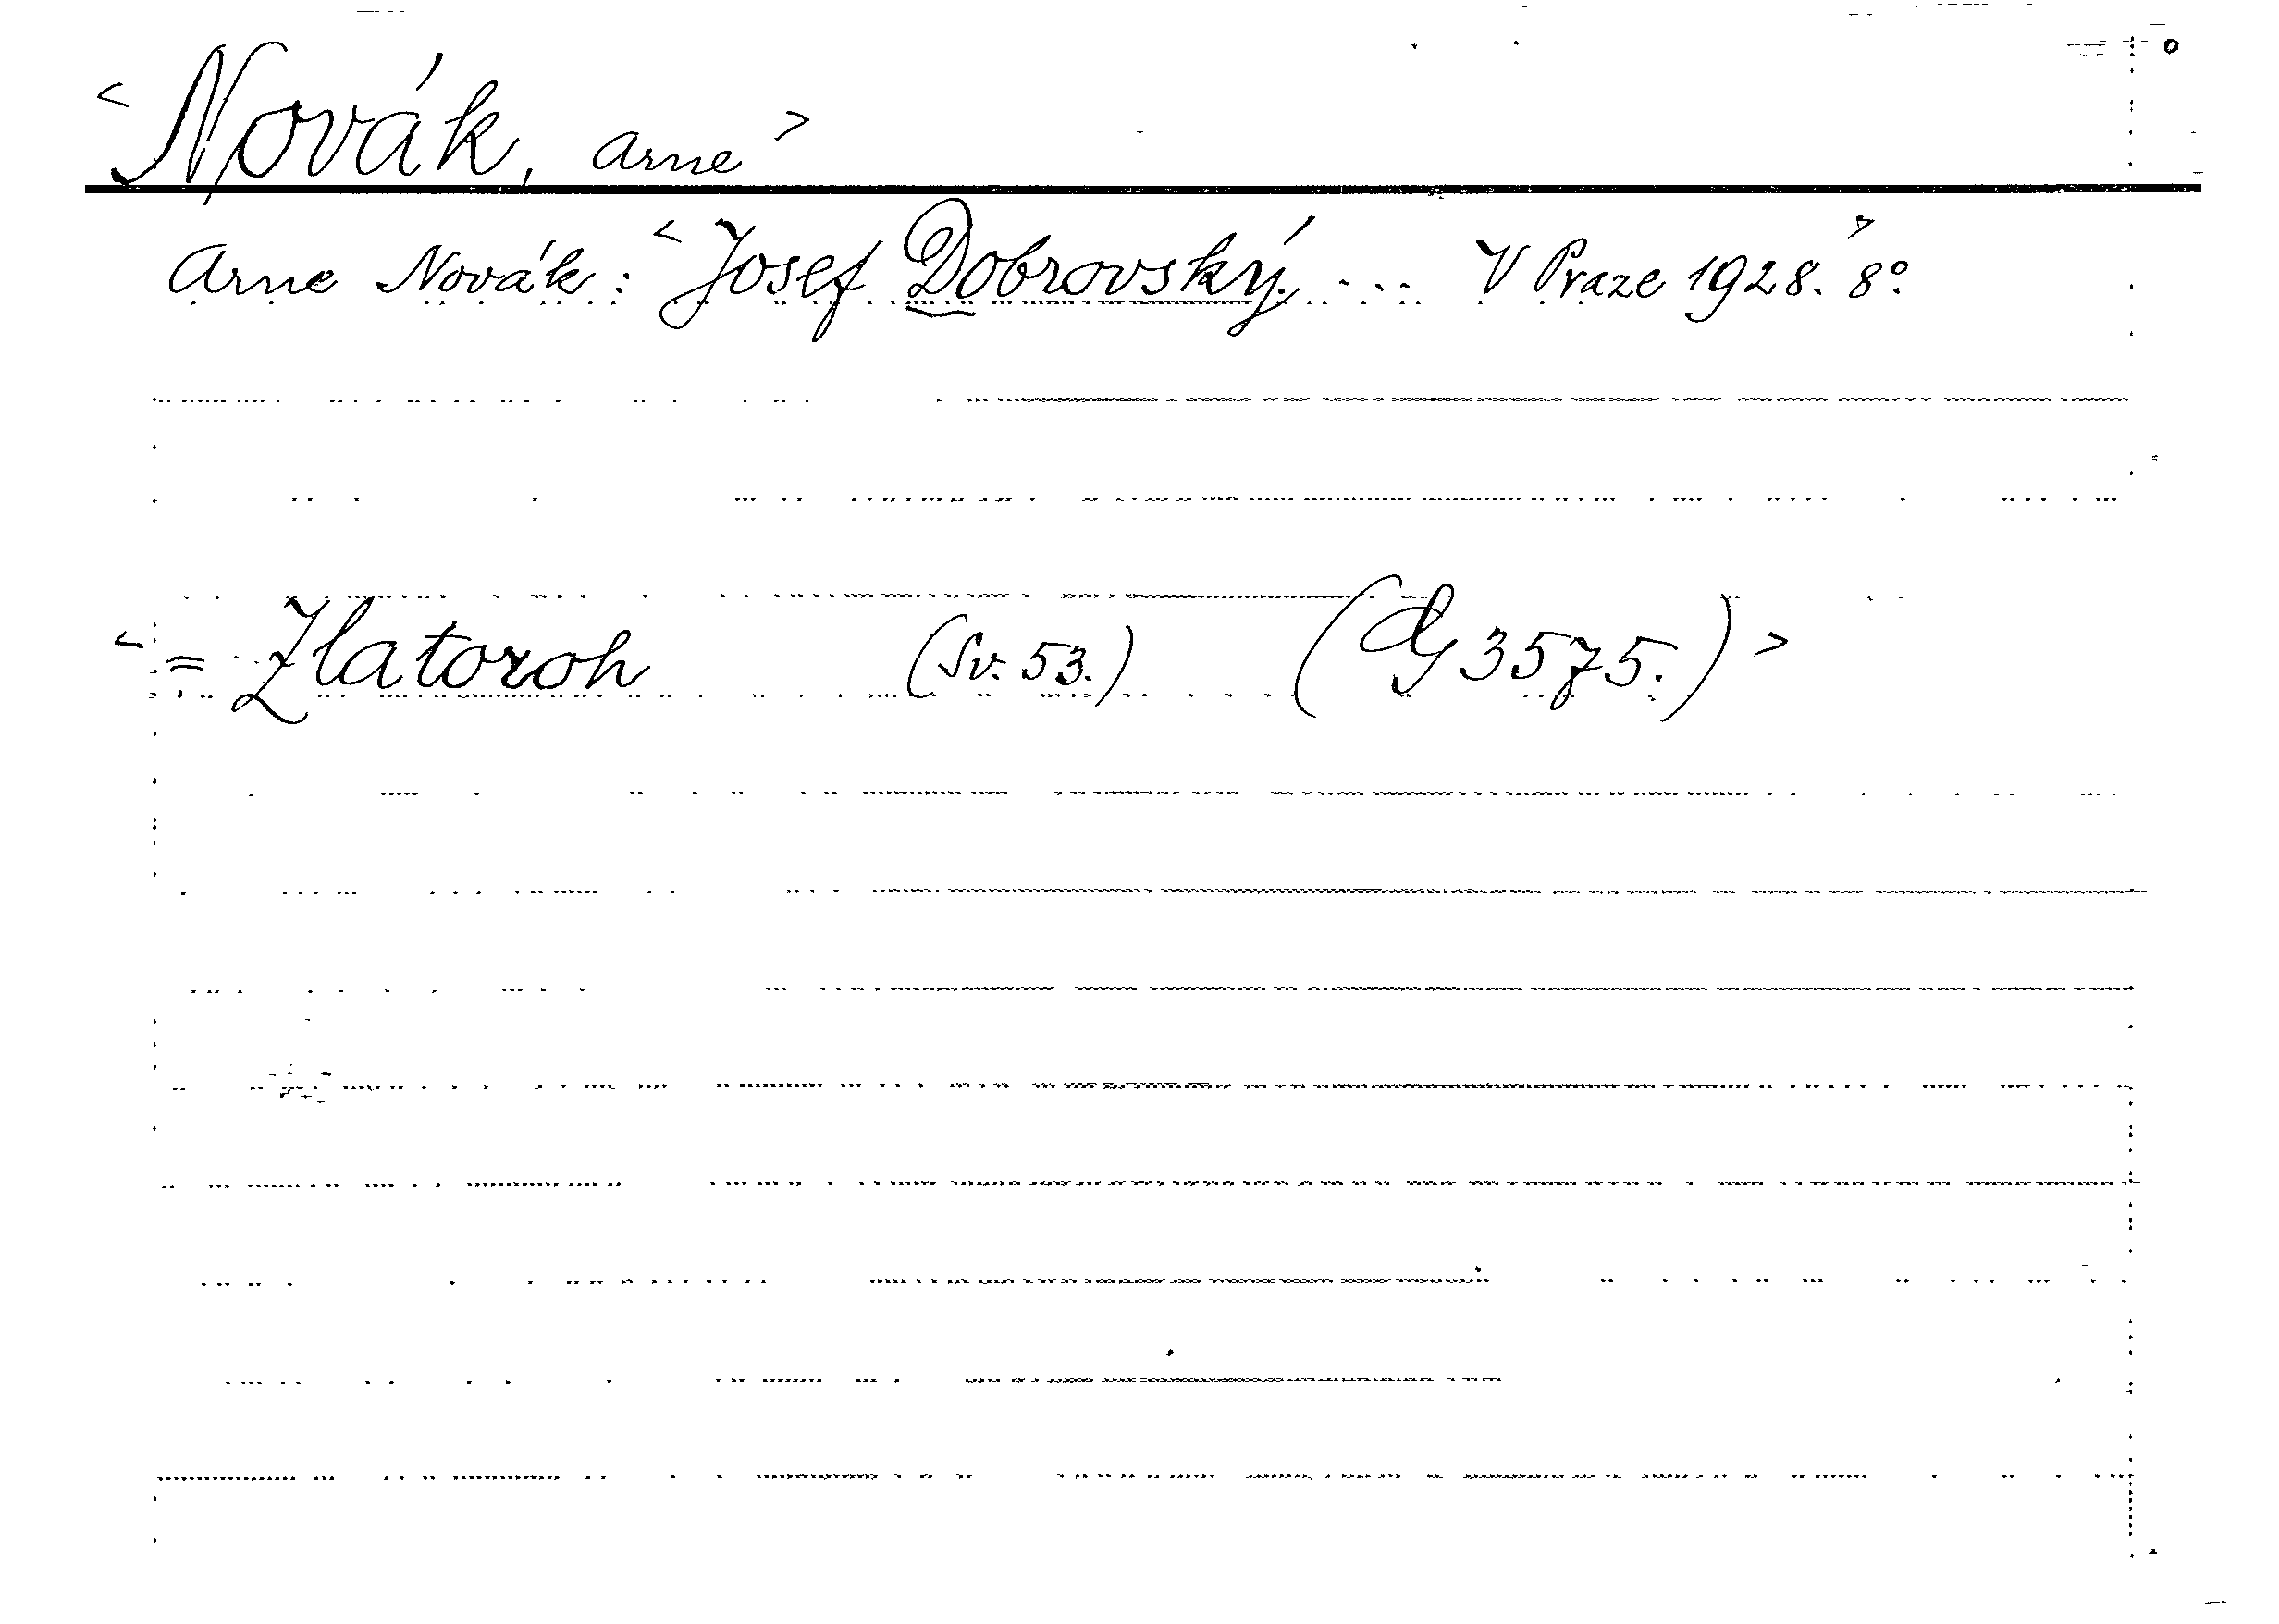 < Novák, Arne >
Arne Novák: < Josef Dobrovský. ... V Praze 1928. 8° >
< = Zlatoroh (Sv. 53.) (Dg 3575.) >